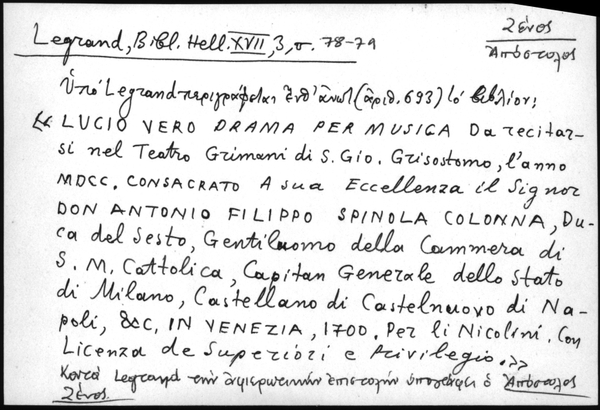 Ζένος
Ἀπόστολος
Legrand, Bibl. Hell. XVII, 3, σ. 78-79
Ὑπὸ Legrand περιγράφεται ἔνθ' ἀνωτ. (ἀριθ. 693) τὸ βιβλίον:
« LUCIO VERO DRAMA PER MUSICA Da recitar-
si nel Teatro Grimani di S. Gio. Grisostomo, l'anno
MDCC. CONSACRATO A sua Eccellenza il Signor
DON ANTONIO FILIPPO SPINOLA COLONNA, Du-
ca del Sesto, Gentiluomo della Cammera di
S. M. Cattolica, Capitan Generale dello stato
di Milano, Castellano di Castelnuovo di Na-
poli, &&C. IN VENEZIA, 1700. Per li Nicolini. Con
Licenza de Superiori e Privilegio.»
Κατὰ Legrand τὴν ἀφιερωτικὴν ἐπιστολὴν ὑπογράφει ὁ Ἀπόστολος
Ζένος.